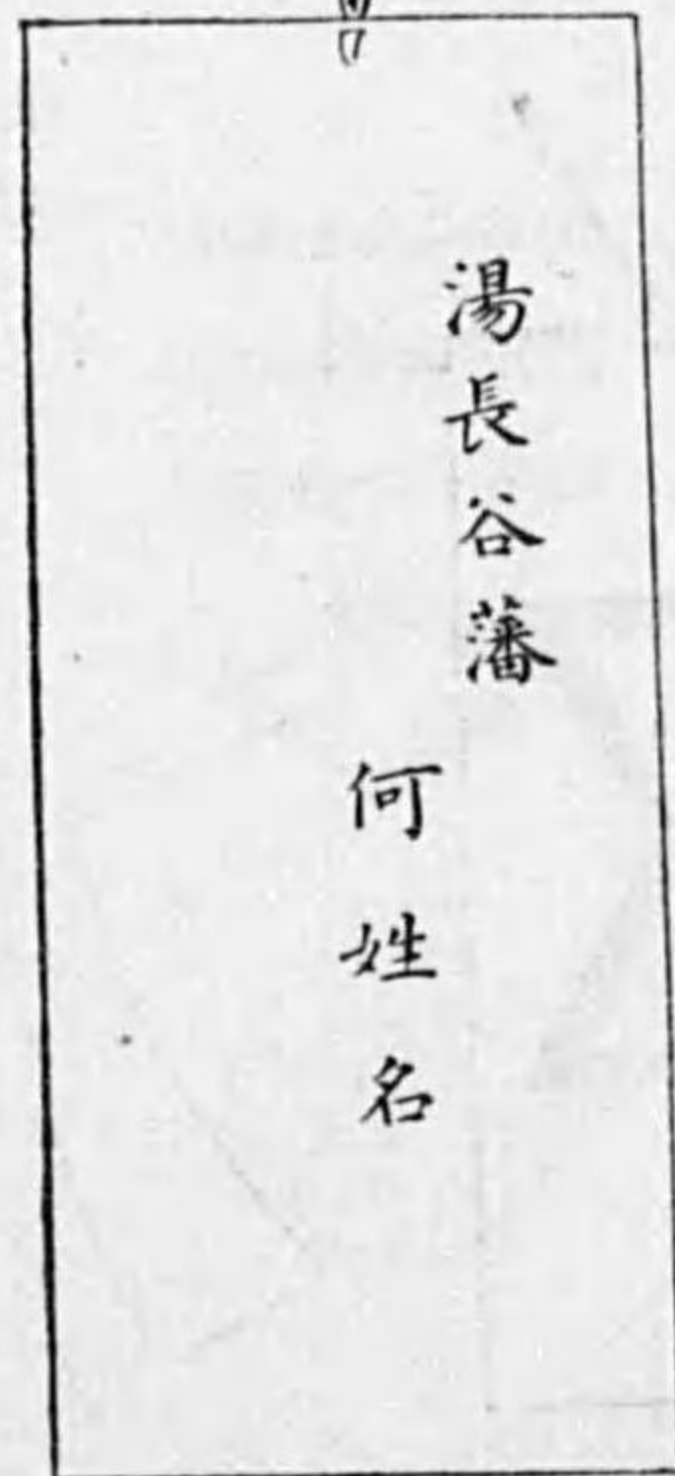 湯長谷藩
何姓名